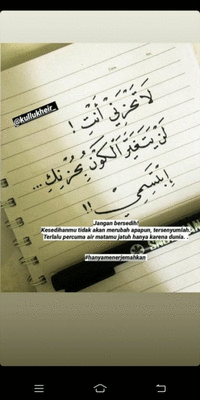 @kullukheir_
لَا تَحْزَنِيْ أَنْتِ !
لَنْ يَتَغَيَّرَ الْكَوْنُ بِحُزْنِكِ...
اِبْتَسِمِيْ !!
Jangan bersedih!
Kesedihanmu tidak akan merubah apapun, tersenyumlah.
Terlalu percuma air matamu jatuh hanya karena dunia. .
#hanyamenerjemahkan